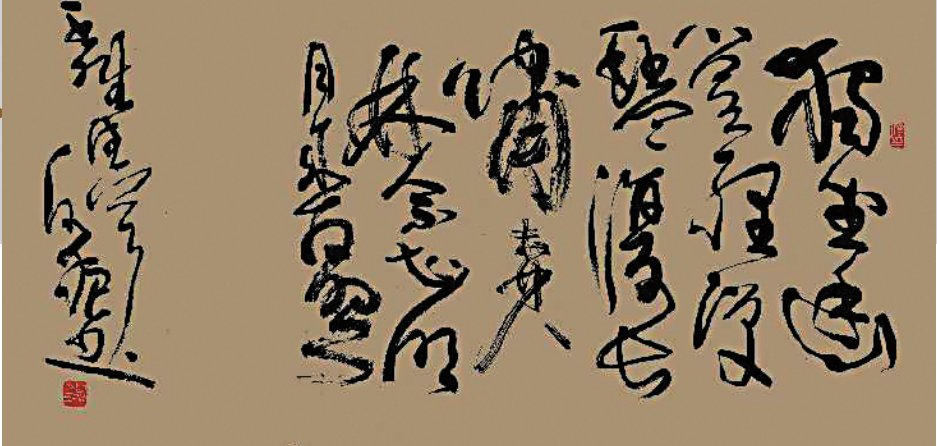 獨坐幽
篁裡彈
琴復長
嘯深
林人不知明
月来相照
王維